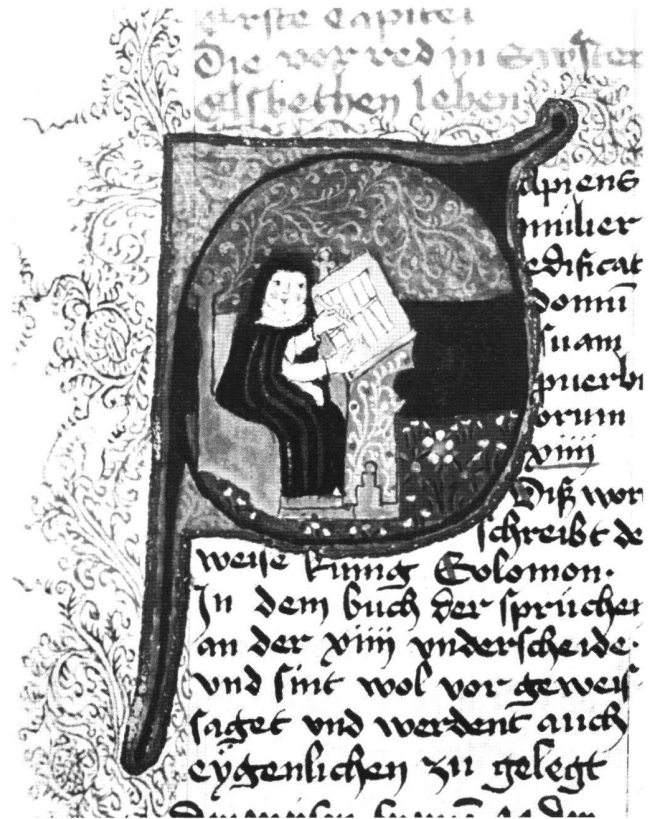 erste Capitel
Die vor red in Swster
elsbethen leben
apiens
mulier
edificat
domū
suam
puerbi
orum
xiiii
Diß wor
schreibt de
weise kunig Solomon.
In dem buch der sprüchen
an der xiiii vnderscheide.
vnd sint wol vor geweis
saget vnd werdent auch
eÿgenlichen zu gelegt